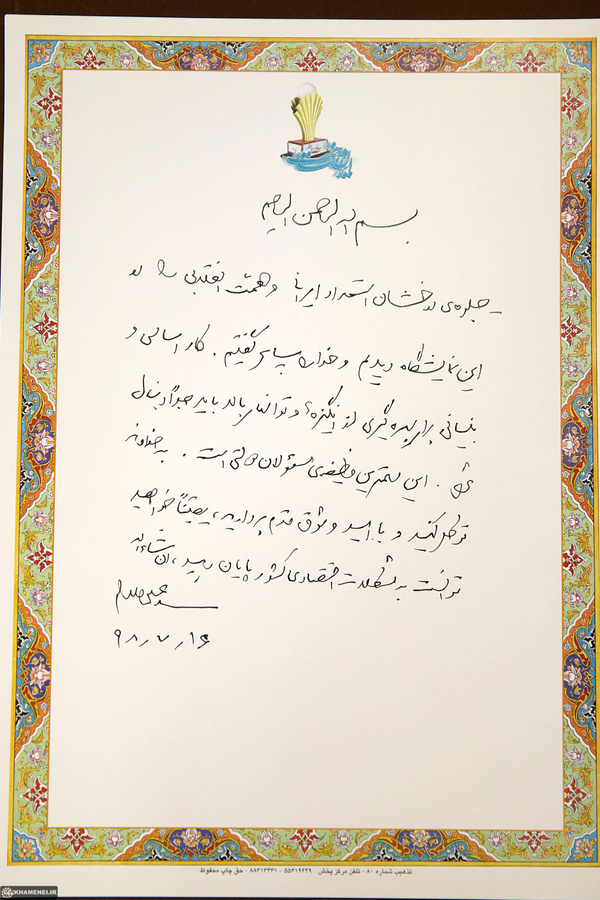 بسم الله الرحمن الرحیم
ـ جلوه‌ی درخشان استعداد ایرانی و همت انقلابی را در
این نمایشگاه دیدم و خدا را سپاس گفتم. کار اساسی و
بنیانی برای بهره‌گیری از انگیزه‌ها و توانهای بالا باید جداً دنبال
شود. این مهمترین وظیفه‌ی مسؤولان دولتی است. به خداوند
توکل کنید و با امید و وثوق قدم بردارید، یقیناً خواهید
توانست به مشکلات اقتصادی کشور پایان دهید، ان شاءالله
سیدعلی خامنه‌ای
۹۸٫۷٫۱۶
تذهیب شماره ۸۰ - تلفن مرکز پخش: ۵۵۶۱۹۲۴۹ - ۸۸۳۱۳۴۳۱ - حق چاپ محفوظ
KHAMENEI.IR